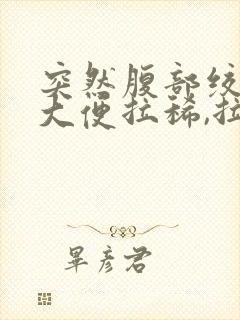 突然腹部绞
大便拉稀,拉
畢彦君